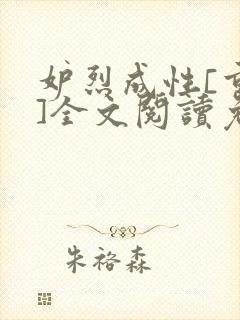 妒烈成性[重
]全文閱讀免
朱裕森